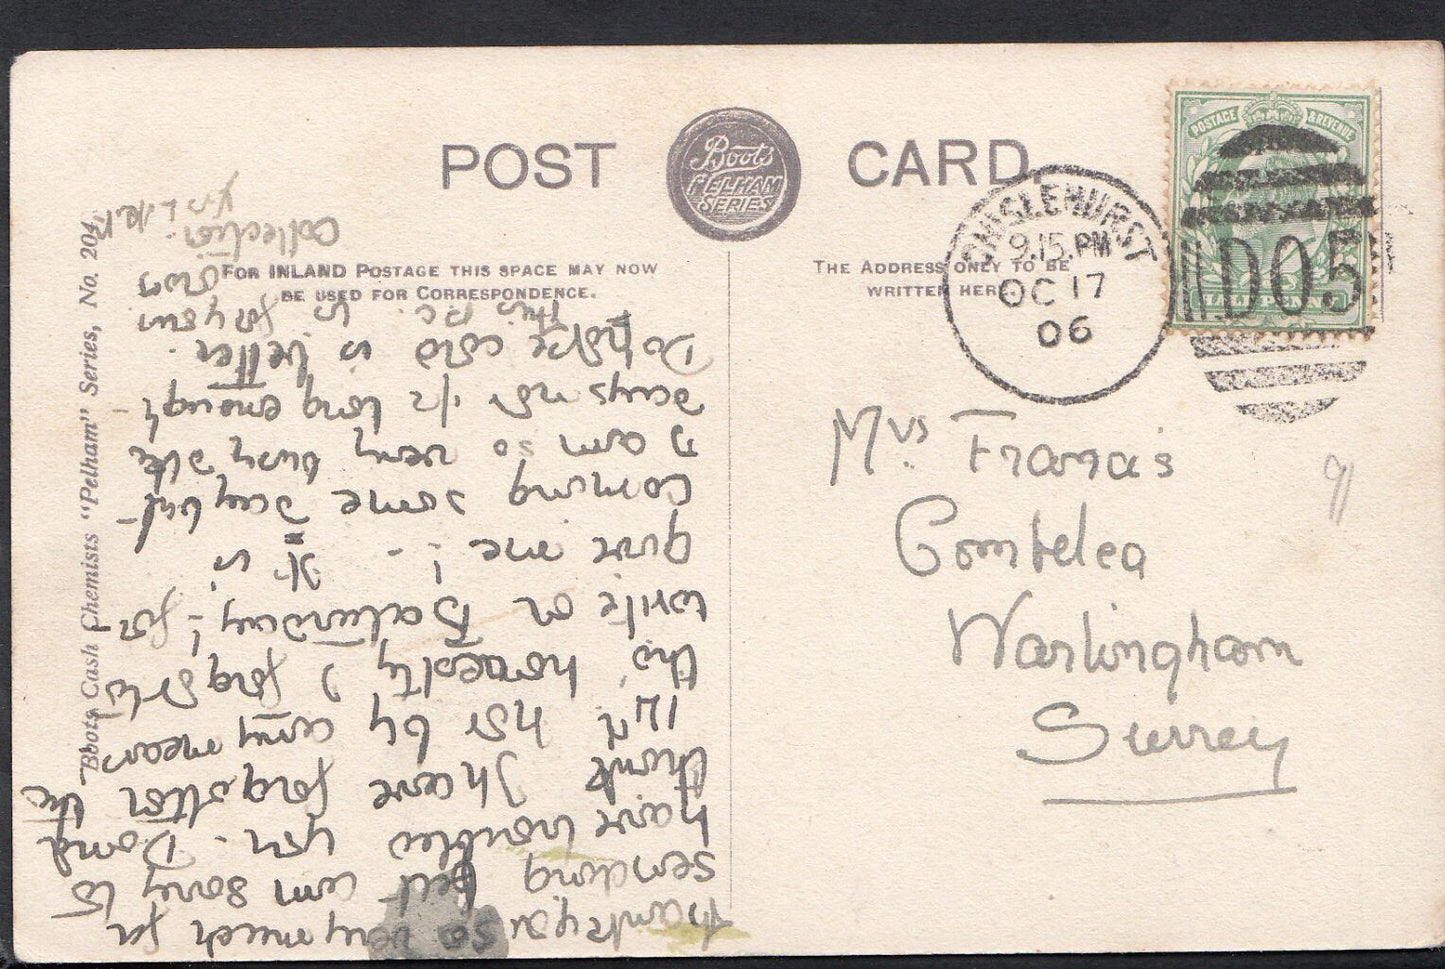 POST CARD
Boots
PELHAM
SERIES
FOR INLAND POSTAGE THIS SPACE MAY NOW
BE USED FOR CORRESPONDENCE.
THE ADDRESS ONLY TO BE
WRITTEN HERE
Boots Cash Chemists "Pelham" Series, No. 204.
POSTAGE & REVENUE
HALFPENNY
CHISLEHURST
9.15.PM
OC 17
06
D05
Mrs. Francis
Combelea
Warlingham
Surrey
Thankyou so very much for
sending felt am sorry to
have troubled you. Dont
think I have forgotten the
17th not by any means
tho' honestly I forgot to
write on Saturday! for
give me! - It is
coming some day but
I am so very busy the
days not 1/2 long enough
Do hope cold is better.
This p.c. is for your
own
collection
Yrs